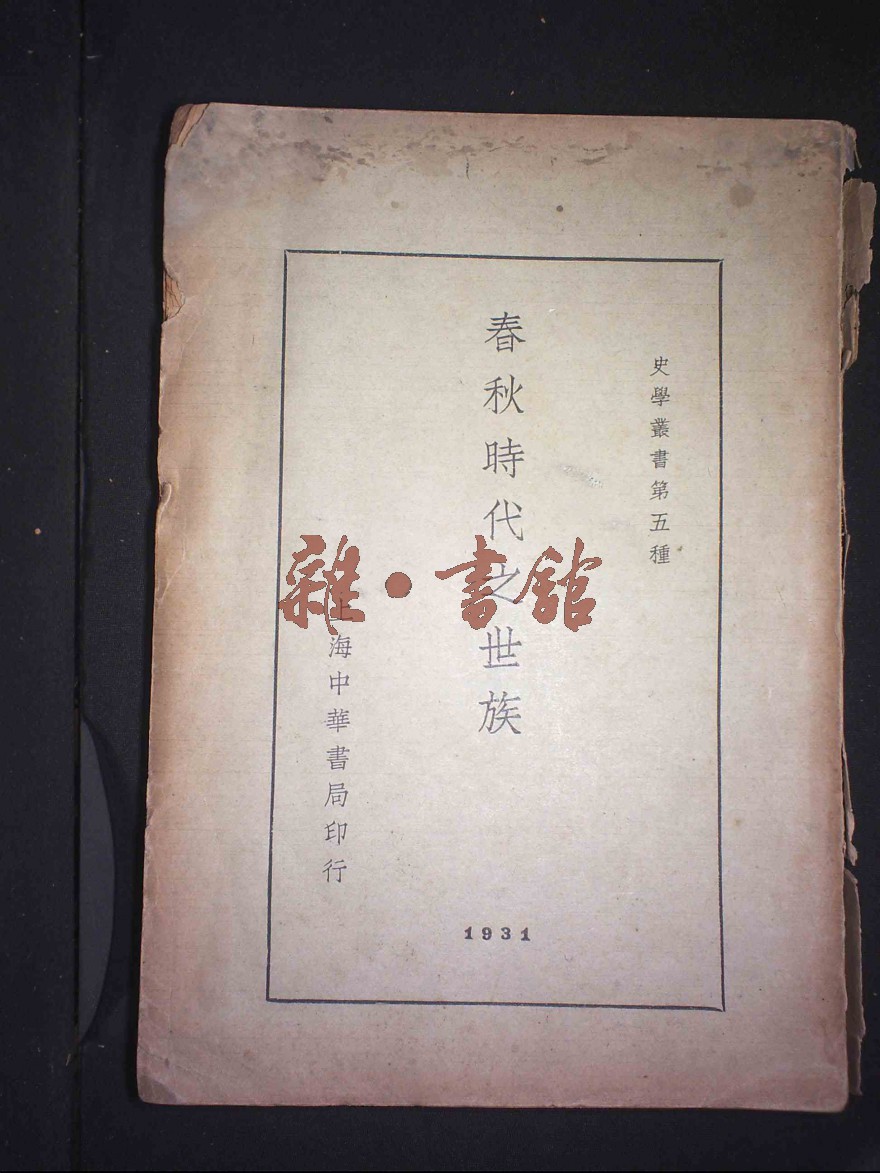 史學叢書第五種
春秋時代之世族
上海中華書局印行
1931
雜·書館